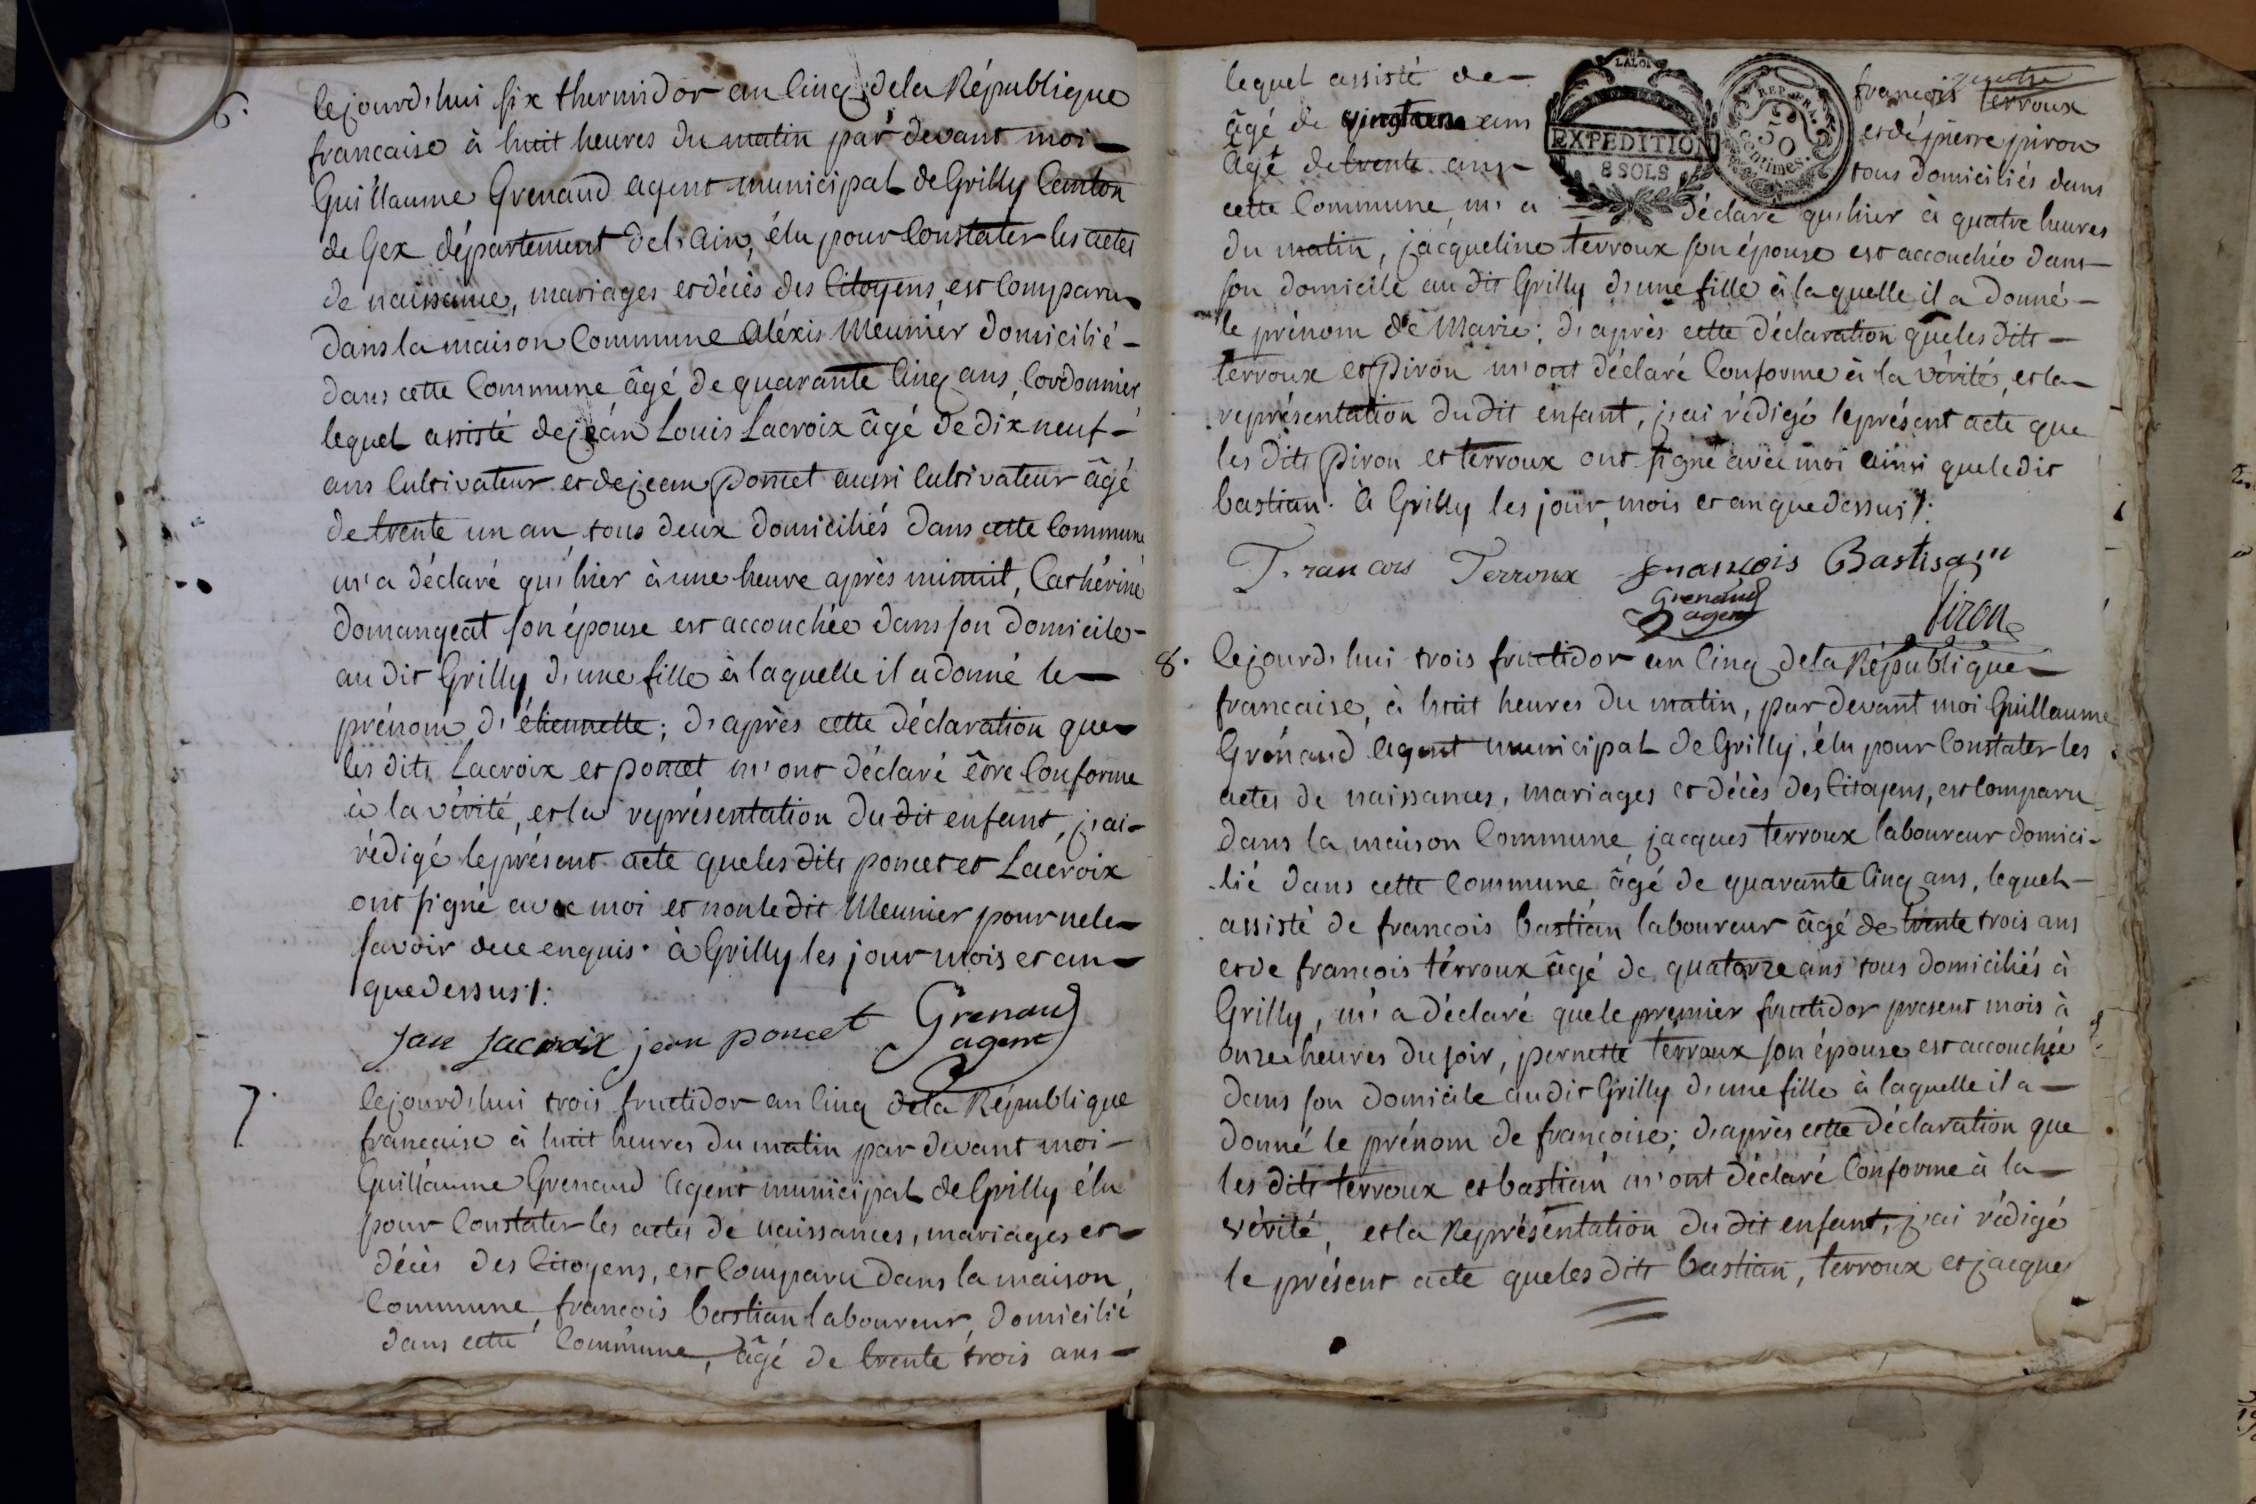 6.
Cejourd'hui six thermidor an Cinq de la République
francaise à huit heures du matin par devant moi
Guillaume Grenaud agent municipal de Grilly Canton
de Gex département de l'ain, élu pour Constater les actes
de naissance, mariages et décès des Citoyens, est Comparu
dans la maison Commune aléxis Meunier domicilié
dans cette Commune âgé de quarante Cinq ans, Cordonnier
lequel assisté de jean Louis Lacroix âgé de dix neuf
ans Cultivateur et de jean poncet aussi Cultivateur âgé
de trente un an tous deux domiciliés dans cette Commune
m'a déclaré qu'hier à une heure après minuit, Cathérine
domangeat son épouse est accouchée dans son domicile
au dit Grilly d'une fille à laquelle il a donné le
prénom d'étiennette; d'après cette déclaration que
les dits Lacroix et poncet m'ont déclaré être Conforme
à la vérité, et la représentation du dit enfant, j'ai
rédigé le présent acte que les dits poncet et Lacroix
ont signé avec moi et non le dit Meunier pour ne le
savoir de ce enquis. à Grilly les jour mois et an
que dessus ./.
Jan Lacroix jean poncet Grenaud
agent
7.
Cejourd'hui trois fructidor an Cinq de la République
francaise à huit heures du matin par devant moi
Guillaume Grenaud agent municipal de Grilly élu
pour Constater les actes de naissances, mariages et
décès des Citoyens, est Comparu dans la maison
Commune, francois bastian laboureur, domicilié
dans cette Commune, âgé de trente trois ans
lequel assisté de francois terroux
âgé de ans et de pierre piron
âgé de trente ans tous domiciliés dans
cette Commune m'a déclaré qu'hier à quatre heures
du matin, jacqueline terroux son épouse est accouchée dans
son domicile au dit Grilly d'une fille à la quelle il a donné
le prénom de Marie; d'après cette déclaration que les dits
terroux et Piron m'ont déclaré Conforme à la vérité, et la
représentation du dit enfant, j'ai rédigé le présent acte que
les dits Piron et terroux ont signé avec moi ainsi que le dit
bastian. à Grilly les jour, mois et an que dessus ./.
LALOI
EXPEDITION
8 SOLS
REP. FRA.
50
Centimes.
Francois Terroux francois Bastiaan
Grenaud
agent
Piron
8.
Cejourd'hui trois fructidor an Cinq de la République
francaise, à huit heures du matin, par devant moi Guillaume
Grénaud agent municipal de Grilly, élu pour Constater les
actes de naissances, mariages et décès des Citoyens, est Comparu
dans la maison Commune, jacques terroux laboureur domici-
-lié dans cette Commune âgé de quarante Cinq ans, lequel
assisté de francois bastian laboureur âgé de trente trois ans
et de francois térroux âgé de quatorze ans tous domiciliés à
Grilly, m'a déclaré que le premier fructidor present mois à
onze heures du soir, pernette terroux son épouse est accouchée
dans son domicile au dit Grilly d'une fille à laquelle il a
donné le prénom de françoise; d'après cette déclaration que
les dits terroux et bastian m'ont déclaré Conforme à la
vérité, et la Représentation du dit enfant, j'ai rédigé
le présent acte que les dits bastian, terroux et jacques